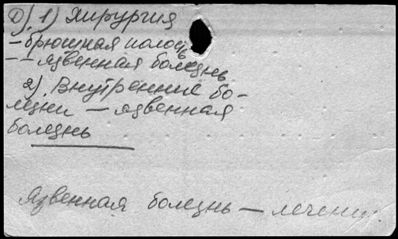 D). 1) Хирургия
– брюшная полость
– – язвенная болезнь
2). Внутренние бо-
лезни – язвенная
болезнь
Язвенная болезнь – лечение.